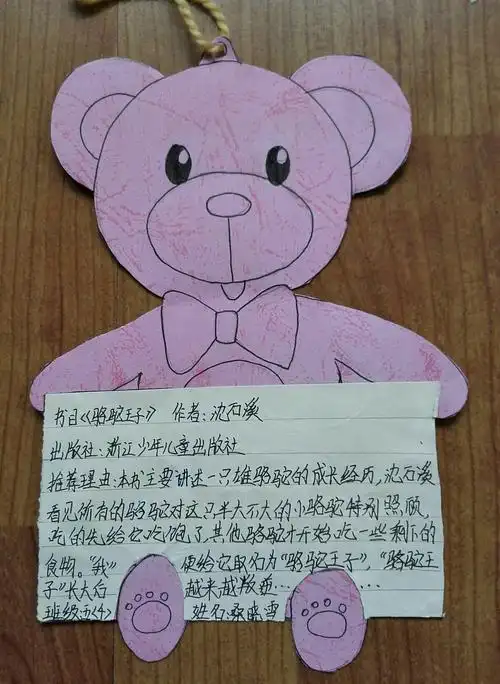 书目《骆驼王子》 作者:沈石溪
出版社:浙江少年儿童出版社
推荐理由:本书主要讲述一只雄骆驼的成长经历,沈石溪
看见所有的骆驼对这只半大不大的小骆驼特别照顾,
吃的先给它吃饱了,其他骆驼才开始吃一些剩下的
食物。“我” 便给它取名为“骆驼王子”,“骆驼王
子”长大后 越来越叛逆… …
班级:五(4) 姓名:桑晓雪